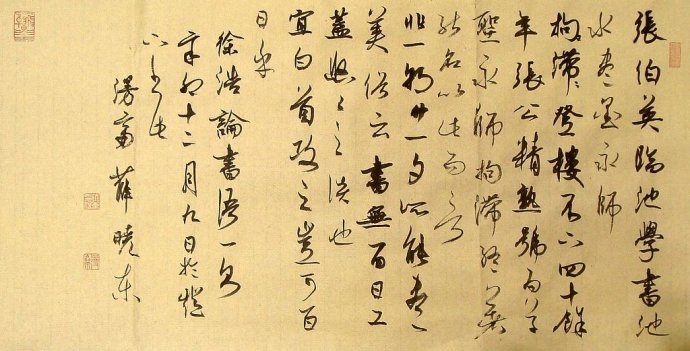 張伯英臨池學書池
水盡墨永師
拘滯登樓不下四十餘
年張公精熟號為草
聖永師拘滯終著
能名以此而言
非一朝一夕所能盡
美俗云書無百日工
蓋悠悠之談也
宜白首攻之豈可百
日乎
徐浩論書語一則
辛卯十二月九日於
薛曉東